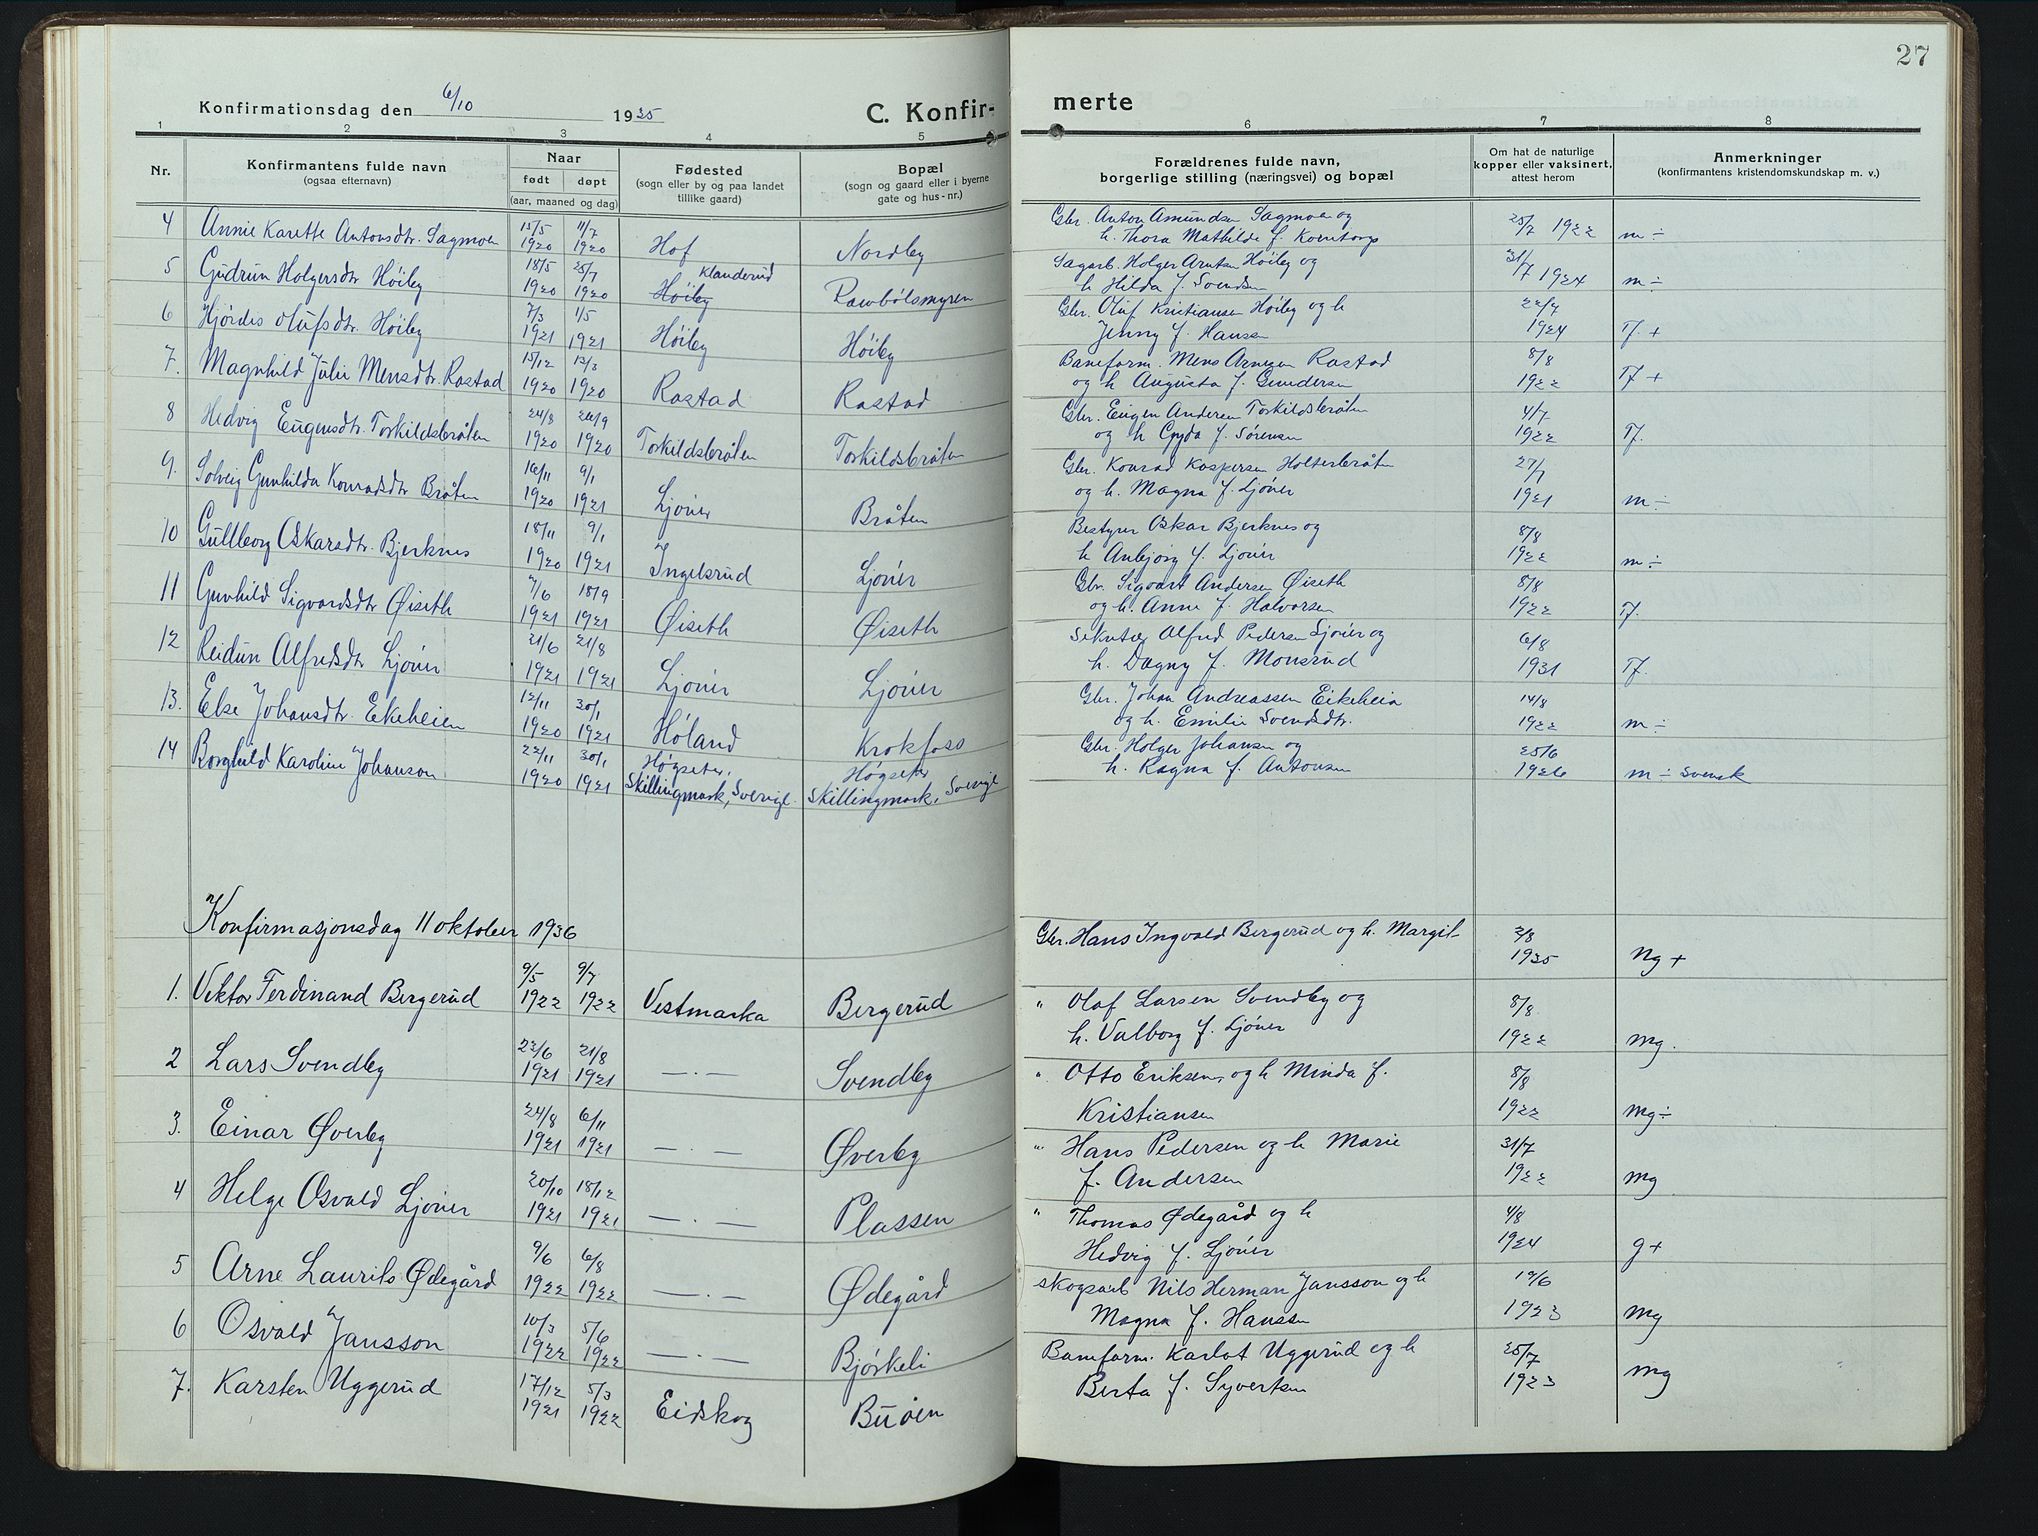 27
Konfirmationsdag den 6/10 1935
C. Konfir-
merte
1 2 3 4 5 6 7 8
Nr.
Konfirmantens fulde navn
(ogsaa efternavn)
Naar
født døpt
(aar, maaned og dag)
Fødested
(sogn eller by og paa landet
tillike gaard)
Bopæl
(sogn og gaard eller i byerne
gate og hus-nr.)
Forældrenes fulde navn,
borgerlige stilling (næringsvei) og bopæl
Om hat de naturlige
kopper eller vaksinert,
attest herom
Anmerkninger
(konfirmantens kristendomskundskap m. v.)
4 Annie Karette Antonsdtr. Sagmoen 15/5 1920 11/7 1920 Hof Nordby
Gbr. Anton Amundsen Sagmoen og
h. Thora Mathilde f. 25/7 1922 m ÷
5 Gudrun Holgersdtr Høiby 18/5 1920 25/7 1920 Klanderud Høiby
Sagarb. Holger Arntsen Høiby og
h Hilda f. Svendsen 31/7 1924 m ÷
6 Hjørdis Olufsdtr. Høiby 7/3 1921 1/5 1921 Høiby Høiby
Gbr. Oluf Kristiansen Høiby og h
Jenny f. Hansen 1924 Tf. +
7. Magnhild Julie Mensdtr. Rastad 15/12 1920 13/3 1920 Rastad Rastad
Baneform. Mens Arnesen Rastad
og h Augusta f. Gundersen 8/8 1922 Tf +
8 Hedvig Eugensdtr. Toskildsbråten 24/8 1920 26/9 1920 Toskildsbråten Toskildsbråten
Gbr. Eugen Andersen Toskildsbråten
og h Gyda f. Sørensen 4/7 1922 Tf.
9. Solveig Gunhilda Konradsdtr Bråten 16/11 1920 9/1 1921 Ljøner Bråten
Gbr. Konrad Kaspersen Holterbråten
og h. Magna f. Ljøner 27/7 1921 m ÷
10 Gullborg Oskarsdtr. Bjerknes 18/11 1920 9/1 1921 Ingelsrud Ljøner
Bestyrer Oskar Bjerknes og
h Anbjørg f. Ljøner 8/8 1922 m ÷
11 Gunhild Sigvardsdtr Øiseth 7/6 1921 18/9 1921 Øiseth Øiseth
Gbr. Sigvart Andersen Øiseth
og h. Anne f. Halvorsen 8/8 1922 Tf.
12 Reidun Alfredsdtr Ljøner 21/6 1921 21/8 1921 Ljøner Ljøner
Alfred Pedersen Ljøner og
h. Dagny f. Monsrud 6/8 1931 Tf.
13. Else Johansdtr. Eikeheien 12/11 1920 30/1 1921 Høland Krokfoss
Gbr. Johan Andreassen Eikeheia
og h. Emilie Svendsdtr. 14/8 1922 m ÷
14 Borghild Karoline Johanson 22/11 1920 30/1 1921 Høgseter, Skillingmark, Sverige. Høgseter Skillingmark, Sverige
Gbr. Holger Johansen og
h. Ragna f. Antonsen 25/6 1926 m ÷ Svensk
Konfirmasjonsdag 11 oktober 1936
1. Viktor Ferdinand Bergerud 9/5 1922 9/7 1922 Vestmarka Bergerud
Gbr. Hans Ingvald Bergerud og h. Margit 3/8 1935 Ng +
2 Lars Svendby 23/6 1921 21/8 1921 —·— Svendby
" Olaf Larsen Svendby og
h. Valborg f. Ljøner 8/8 1922 mg.
3. Einar Øverby 24/8 1921 6/11 1921 —·— Øverby
" Otto Eriksen, og h Minda f.
Kristiansen 8/8 1922 mg ÷
4 Helge Osvald Ljøner 20/10 1921 18/12 1921 —·— Plassen
" Hans Pedersen og h Marie
f. Andersen 31/7 1922 mg
5 Arne Laurits Ødegård 9/6 1922 6/8 1922 —·— Ødegård
" Thomas Ødegård og h
Hedvig f. Ljøner 4/8 1924 g +
6 Osvald Jansson 10/3 1922 5/6 1922 —·— Bjørkeli
Skogsarb Nils Herman Jansson og h
Magna f. Hanssen 1923 mg
7. Karsten Uggerud 17/12 1921 5/3 1922 Eidskog Buøen
Baneform. Karlot Uggerud og h
Berta f. Syvertsen 25/7 1923 mg